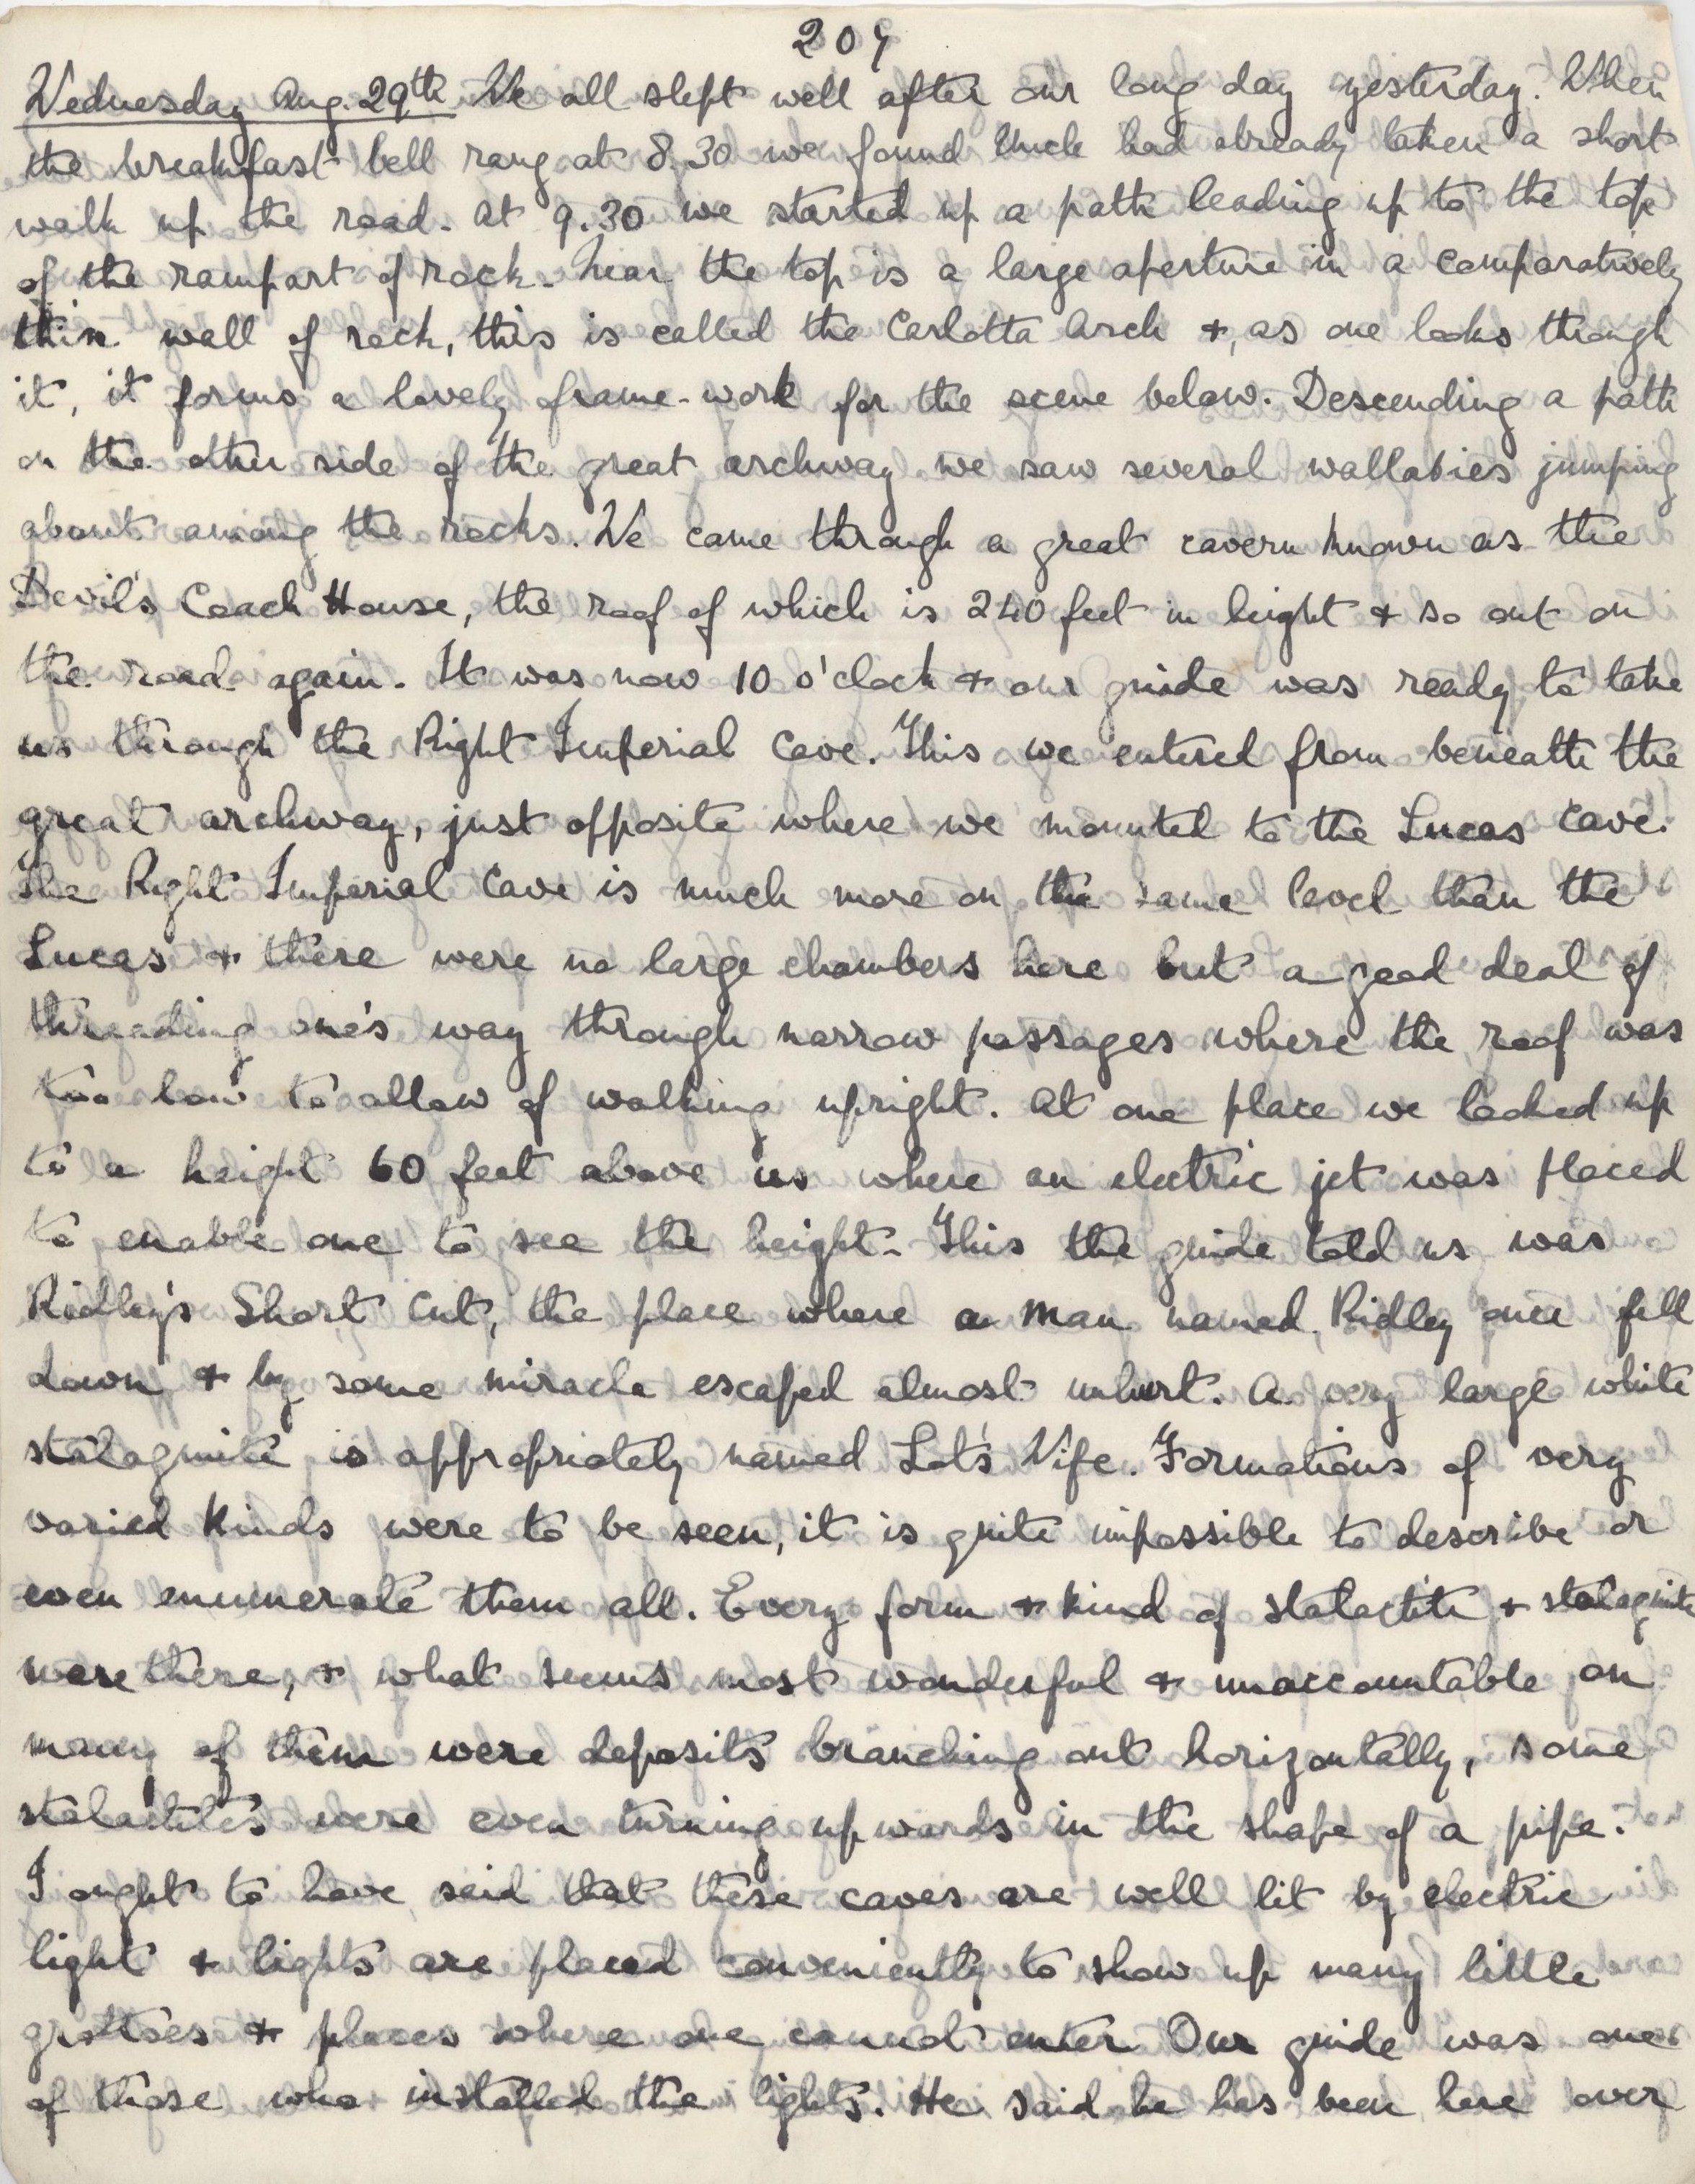 209
Wednesday Aug. 29th We all slept well after our long day yesterday. When
the breakfast bell rang at 8.30 we found Uncle had already taken a short
walk up the road. At 9.30 we started up a path leading up to the top
of the rampart of rock. Near the top is a large aperture in a comparatively
thin wall of rock, this is called the Carlotta Arch +, as one looks through
it, it forms a lovely frame-work for the scene below. Descending a path
on the other side of the great archway we saw several wallabies jumping
about among the rocks. We came through a great cavern known as the
Devil's Coach House, the roof of which is 240 feet in height + so out on
the road again. It was now 10 o'clock + our guide was ready to take
us through the Right Imperial Cave. This we entered from beneath the
great archway, just opposite where we mounted to the Lucas Cave.
The Right Imperial Cave is much more on the same level than the
Lucas + there were no large chambers here but a good deal of
threading one's way through narrow passages where the roof was
too low to allow of walking upright. At one place we looked up
to a height 60 feet above us where an electric jet was placed
to enable one to see the height. This the guide told us was
Ridley's Short Cut, the place where a man named Ridley once fell
down + by some miracle escaped almost unhurt. A very large white
stalagmite is appropriately named Lot's Wife. Formations of very
varied kinds were to be seen, it is quite impossible to describe or
even enumerate them all. Every form + kind of stalactite + stalagmite
were there, + what seems most wonderful + unaccountable on
many of them were deposits branching out horizontally, some
stalactites were even turning upwards in the shape of a pipe.
I ought to have said that these caves are well lit by electric
light + lights are placed conveniently to show up many little
grottoes + places where one cannot enter Our guide was one
of those who installed the lights. He said he has been here over